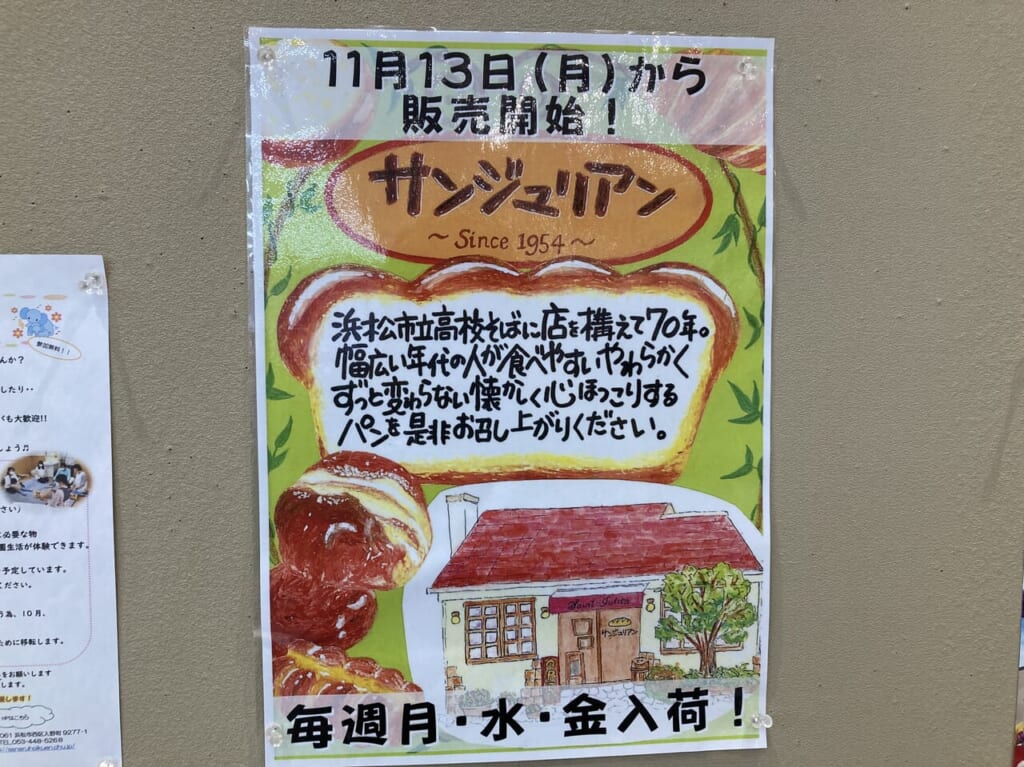 11月13日(月)から
販売開始！
サンジュリアン
～Since 1954～
浜松市立高校そばに店を構えて70年。
幅広い年代の人が食べやすいやわらかく
ずっと変わらない懐かしく心ほっこりする
パンを是非お召し上がりください。
Saint-Julien
サンジュリアン
毎週月・水・金入荷！
参加無料！！
んか？
したり‥
も大歓迎!!
しょう♬
さい）
必要な物
園生活が体験できます。
予定しています。
ください。
う為、10月、
ために移転します。
をお願いします
します。
HPはこちら
061 浜松市西区入野町 9277-1
TEL.053-448-5268